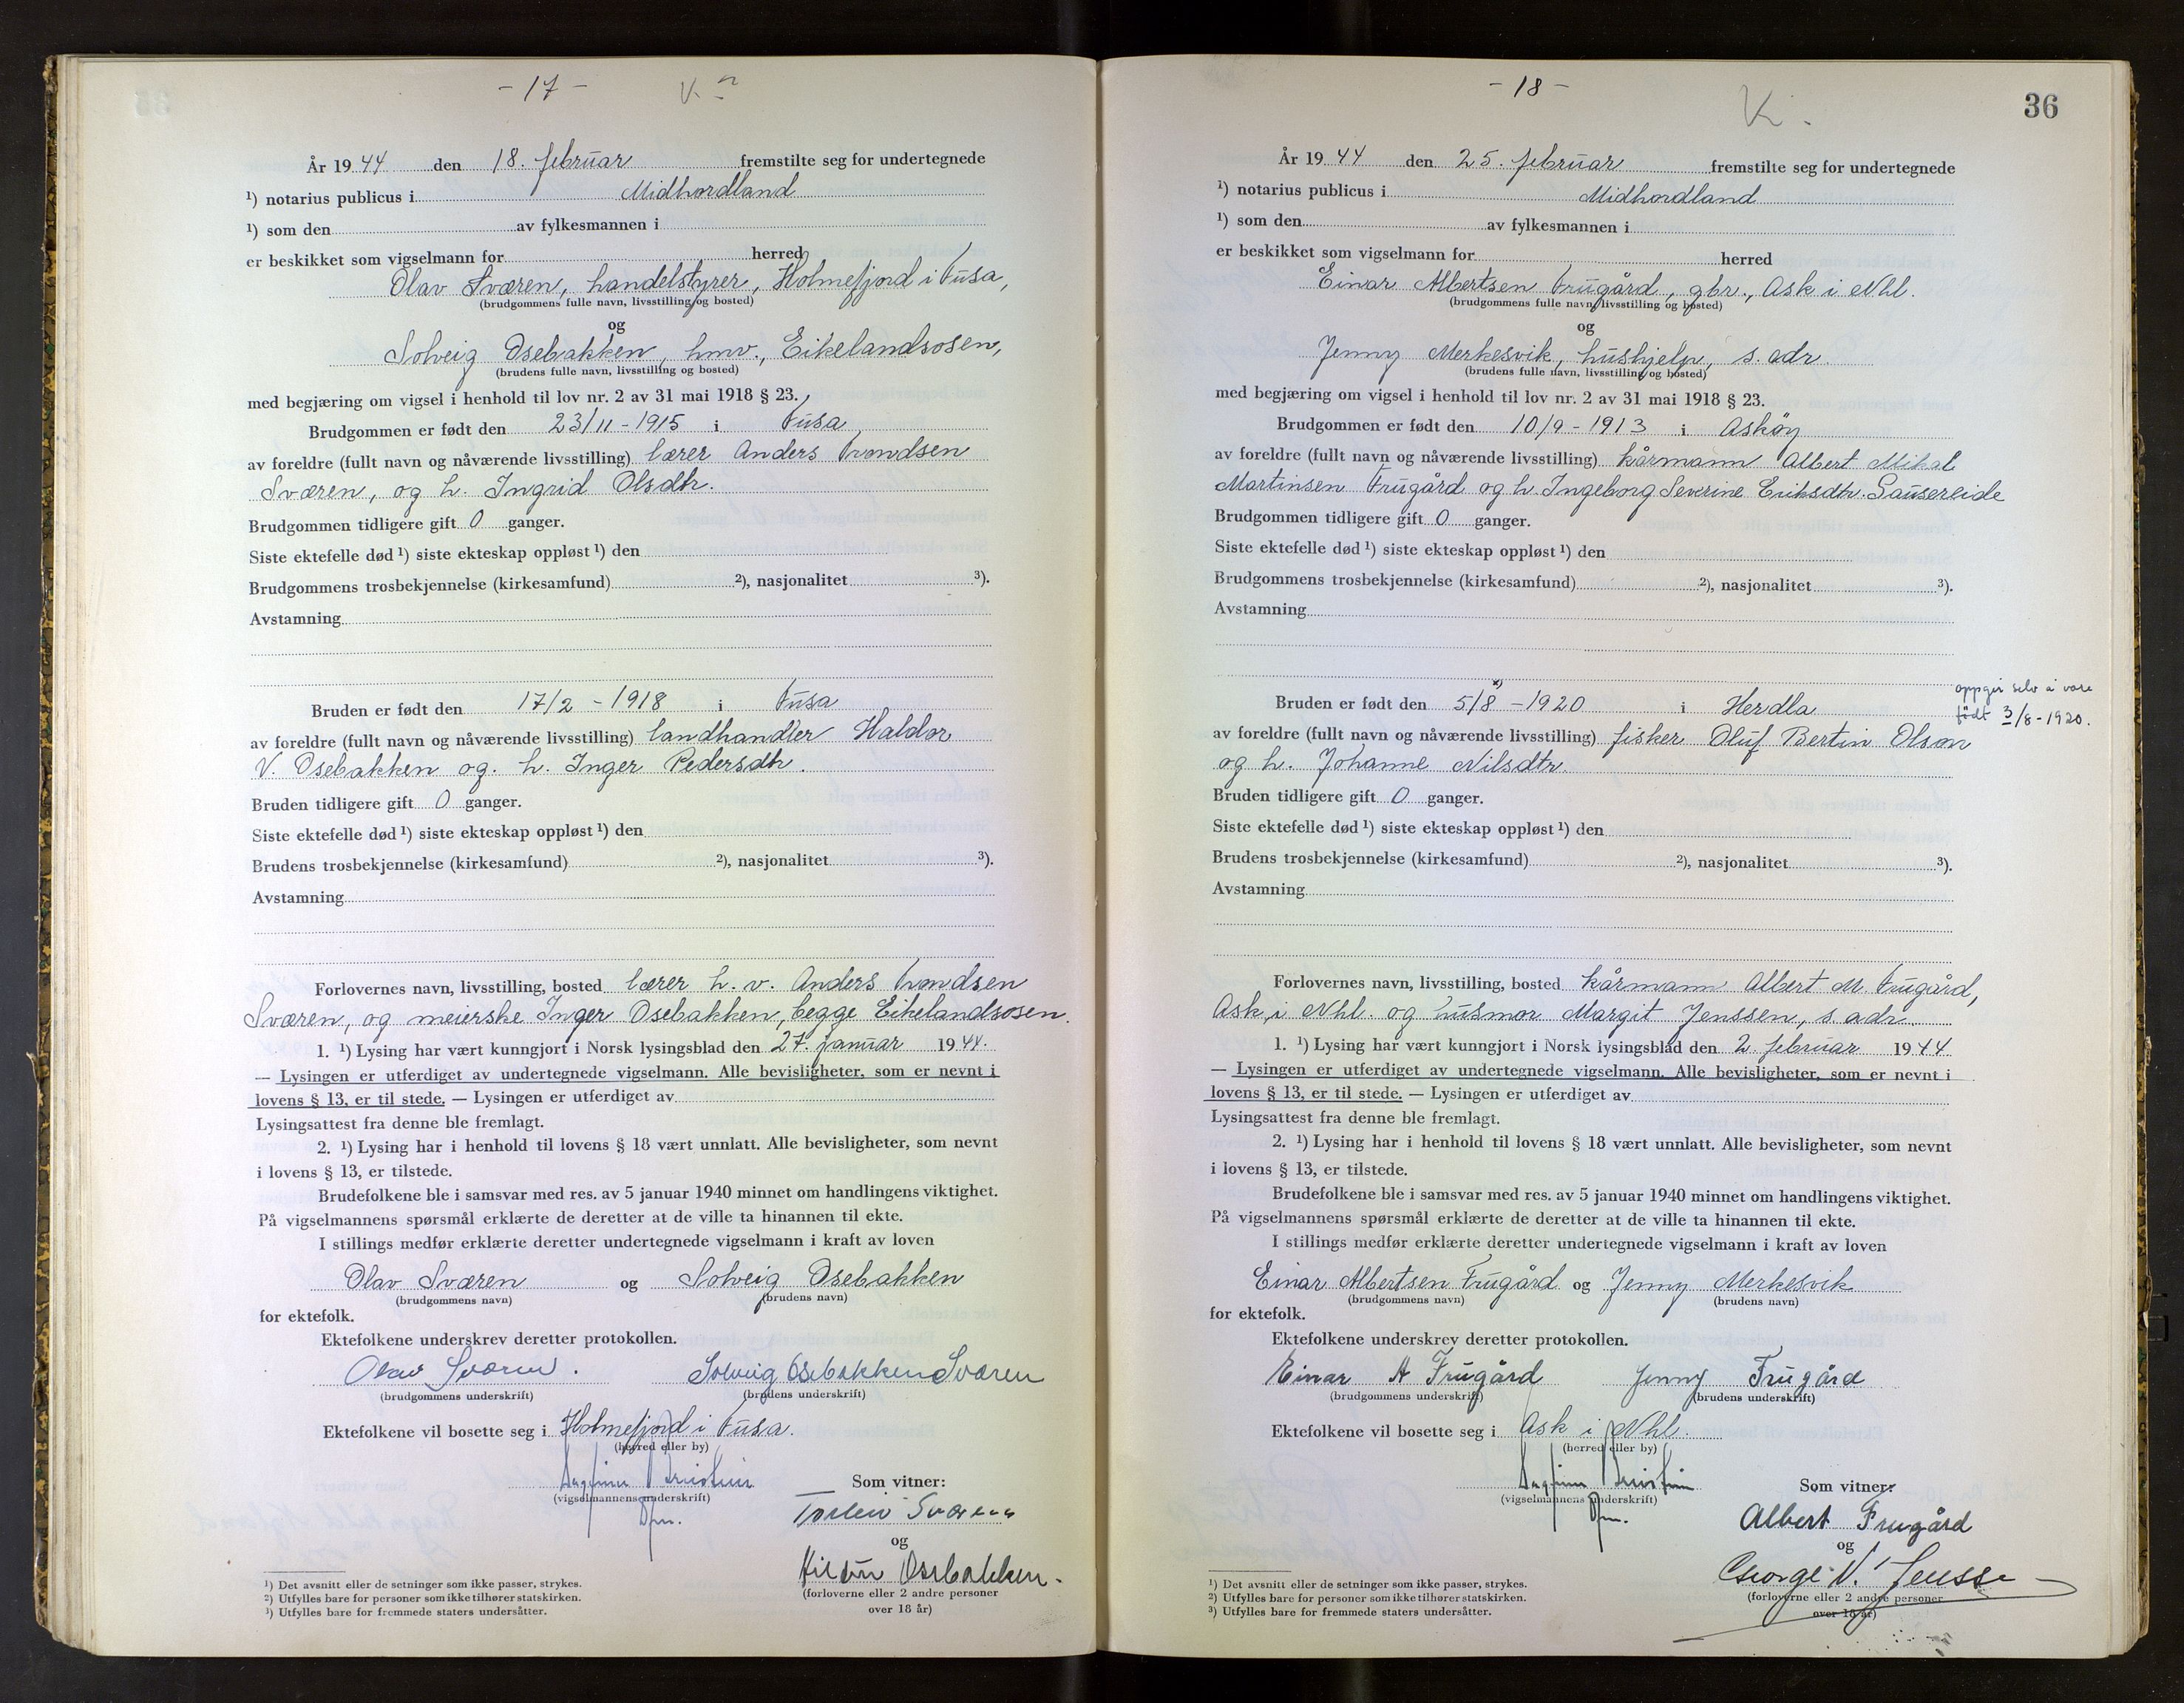 - 17 -
År 19 44 den 18. februar fremstilte seg for undertegnede
¹) notarius publicus i Midhordland
¹) som den av fylkesmannen i
er beskikket som vigselmann for herred
Olav Sværen, handelstyrer, Holmefjord i Fusa,
(brudgommens fulle navn, livsstilling og bosted)
og
Solveig Osebakken, hmv., Eikelandsosen,
(brudens fulle navn, livsstilling og bosted)
med begjæring om vigsel i henhold til lov nr. 2 av 31 mai 1918 § 23.
Brudgommen er født den 23/11 - 1915 i Fusa
av foreldre (fullt navn og nåværende livsstilling) lærer Anders Trondsen
Sværen, og h. Ingrid Olsdtr.
Brudgommen tidligere gift 0 ganger.
Siste ektefelle død ¹) siste ekteskap oppløst ¹) den
Brudgommens trosbekjennelse (kirkesamfund) ²), nasjonalitet ³).
Avstamning
Bruden er født den 17/2 - 1918 i Fusa
av foreldre (fullt navn og nåværende livsstilling) landhandler Haldor
V. Osebakken og. h. Inger Pedersdtr.
Bruden tidligere gift 0 ganger.
Siste ektefelle død ¹) siste ekteskap oppløst ¹) den
Brudens trosbekjennelse (kirkesamfund) ²), nasjonalitet ³).
Avstamning
Forlovernes navn, livsstilling, bosted lærer h. v. Anders Trondsen
Sværen, og meierske Inger Osebakken, begge Eikelandsosen.
1. ¹) Lysing har vært kunngjort i Norsk lysingsblad den 27. januar 1944.
— Lysingen er utferdiget av undertegnede vigselmann. Alle bevisligheter, som er nevnt i
lovens § 13, er til stede. — Lysingen er utferdiget av
Lysingsattest fra denne ble fremlagt.
2. ¹) Lysing har i henhold til lovens § 18 vært unnlatt. Alle bevisligheter, som nevnt
i lovens § 13, er tilstede.
Brudefolkene ble i samsvar med res. av 5 januar 1940 minnet om handlingens viktighet.
På vigselmannens spørsmål erklærte de deretter at de ville ta hinannen til ekte.
I stillings medfør erklærte deretter undertegnede vigselmann i kraft av loven
Olav Sværen og Solveig Osebakken
(brudgommens navn) (brudens navn)
for ektefolk.
Ektefolkene underskrev deretter protokollen.
Olav Sværen. Solveig Osebakken Sværen
(brudgommens underskrift) (brudens underskrift)
Ektefolkene vil bosette seg i Holmefjord i Fusa.
(herred eller by)
(vigselmannens underskrift)
Som vitner:
Sværen
og
Osebakken.
(forloverne eller 2 andre personer
over 18 år)
¹) Det avsnitt eller de setninger som ikke passer, strykes.
²) Utfylles bare for personer som ikke tilhører statskirken.
³) Utfylles bare for fremmede staters undersåtter.
- 18 -
36
År 19 44 den 25. februar fremstilte seg for undertegnede
¹) notarius publicus i Midhordland
¹) som den av fylkesmannen i
er beskikket som vigselmann for herred
Einar Albertsen Frugård, gbr., Ask i Nhl.
(brudgommens fulle navn, livsstilling og bosted)
og
Jenny Merkesvik, hushjelp, s. adr.
(brudens fulle navn, livsstilling og bosted)
med begjæring om vigsel i henhold til lov nr. 2 av 31 mai 1918 § 23.
Brudgommen er født den 10/9 - 1913 i Askøy
av foreldre (fullt navn og nåværende livsstilling) kårmann Albert Mikal
Martinsen Frugård og h. Ingeborg Severine Eriksdtr. Sausereide
Brudgommen tidligere gift 0 ganger.
Siste ektefelle død ¹) siste ekteskap oppløst ¹) den
Brudgommens trosbekjennelse (kirkesamfund) ²), nasjonalitet ³).
Avstamning
Bruden er født den 5/8 *) - 1920 i Herdla
oppgir selv å være
født 3/8 - 1920.
av foreldre (fullt navn og nåværende livsstilling) fisker Oluf Bertin Olson
og h. Johanne Nilsdtr.
Bruden tidligere gift 0 ganger.
Siste ektefelle død ¹) siste ekteskap oppløst ¹) den
Brudens trosbekjennelse (kirkesamfund) ²), nasjonalitet ³).
Avstamning
Forlovernes navn, livsstilling, bosted kårmann Albert M. Frugård,
Ask i Nhl. og husmor Margit Jenssen, s. adr.
1. ¹) Lysing har vært kunngjort i Norsk lysingsblad den 2. februar 1944
— Lysingen er utferdiget av undertegnede vigselmann. Alle bevisligheter, som er nevnt i
lovens § 13, er til stede. — Lysingen er utferdiget av
Lysingsattest fra denne ble fremlagt.
2. ¹) Lysing har i henhold til lovens § 18 vært unnlatt. Alle bevisligheter, som nevnt
i lovens § 13, er tilstede.
Brudefolkene ble i samsvar med res. av 5 januar 1940 minnet om handlingens viktighet.
På vigselmannens spørsmål erklærte de deretter at de ville ta hinannen til ekte.
I stillings medfør erklærte deretter undertegnede vigselmann i kraft av loven
Einar Albertsen Frugård og Jenny Merkesvik
(brudgommens navn) (brudens navn)
for ektefolk.
Ektefolkene underskrev deretter protokollen.
Einar A Frugård Jenny Frugård
(brudgommens underskrift) (brudens underskrift)
Ektefolkene vil bosette seg i Ask i Nhl.
(herred eller by)
(vigselmannens underskrift)
Som vitner:
Albert Frugård
og
George N. Jensse
(forloverne eller 2 andre personer
over 18 år)
¹) Det avsnitt eller de setninger som ikke passer, strykes.
²) Utfylles bare for personer som ikke tilhører statskirken.
³) Utfylles bare for fremmede staters undersåtter.